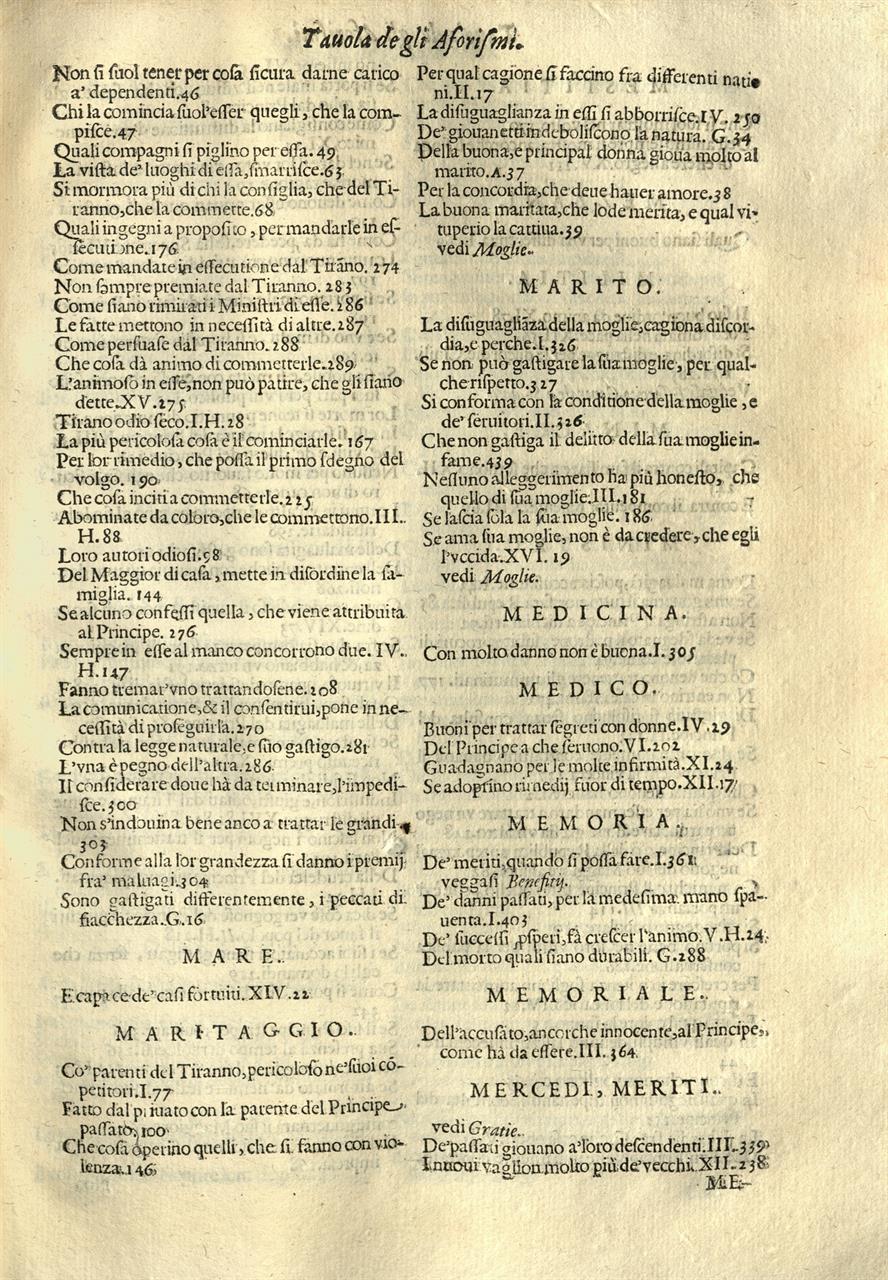 Tauola de gli Aforiſmi.
Non ſi ſuol tener per coſa ſicura darne carico
a' dependenti.46
Chi la comincia ſuol'eſſer quegli, che la com-
piſce.47
Quali compagni ſi piglino per eſſa. 49
La viſta de' luoghi di eſſa, ſmarriſce.63
Si mormora più di chi la conſiglia, che del Ti-
ranno, che la commette.68
Quali ingegni a propoſito, per mandarle in eſ-
ſecutione.176
Come mandate in eſſecutione dal Tirãno. 274
Non ſempre premiate dal Tiranno. 283
Come ſiano rimirati i Miniſtri di eſſe.286
Le fatte mettono in neceſſità di altre.287
Come perſuaſe dal Tiranno.288
Che coſa dà animo di commetterle.289
L'animoſo in eſſe, non può patire, che gli ſiano
dette.XV.275
Tirano odio ſeco.I.H.28
La più pericoloſa coſa è il cominciarle. 167
Per lor rimedio, che poſſa il primo ſdegno del
volgo. 190
Che coſa inciti a commetterle.225
Abominate da coloro, che le commettono.III.
H.88
Loro autori odioſi.98
Del Maggior di caſa, mette in diſordine la fa-
miglia. 144
Se alcuno confeſſi quella, che viene attribuita
al Principe. 276
Sempre in eſſe al manco concorrono due. IV.
H.147
Fanno tremar'vno trattandoſene.208
La comunicatione, & il conſentirui, pone in ne-
ceſſità di proſeguirla.270
Contra la legge naturale, e ſuo gaſtigo.281
L'vna è pegno dell'altra.286
Il conſiderare doue hà da terminare, l'impedi-
ſce.300
Non s'indouina bene anco a trattar le grandi.
303
Conforme alla lor grandezza ſi danno i premij
fra' maluagi.304
Sono gaſtigati differentemente, i peccati di
fiacchezza.G.16
MARE.
E capace de' caſi fortuiti. XIV.22
MARITAGGIO.
Co' parenti del Tiranno, pericoloſo ne' ſuoi cõ-
petitori.I.77
Fatto dal priuato con la parente del Principe
paſſato, 100
Che coſa operino quelli, che ſi fanno con vio-
lenza.146
Per qual cagione ſi faccino fra differenti nati
ni.II.17
La diſuguaglianza in eſſi ſi abborriſce.IV. 250
De' giouanetti indeboliſcono la natura. G.34
Della buona, e principal donna gioua molto al
marito.A.37
Per la concordia, che deue hauer amore.38
La buona maritata, che lode merita, e qual vi-
tuperio la cattiua.39
vedi Moglie.
MARITO.
La diſuguagliãza della moglie, cagiona diſcor-
dia, e perche.I.326
Se non può gaſtigare la ſua moglie, per qual-
che riſpetto.327
Si conforma con la conditione della moglie, e
de' ſeruitori.II.326
Che non gaſtiga il delitto della ſua moglie in-
fame.439
Neſſuno alleggerimento ha più honeſto, che
quello di ſua moglie.III.181
Se laſcia ſola la ſua moglie. 186
Se ama ſua moglie, non è da credere, che egli
l'vccida.XVI. 19
vedi Moglie.
MEDICINA.
Con molto danno non è buona.I. 305
MEDICO.
Buoni per trattar ſegreti con donne.IV.29
Del Principe a che ſeruono.VI.202
Guadagnano per le molte infirmità.XI.24
Se adoprino rimedij fuor di tempo.XII.17
MEMORIA.
De' meriti, quando ſi poſſa fare.I.361
veggaſi Benefitij.
De' danni paſſati, per la medeſima mano ſpa-
uenta.I.403
De' ſucceſſi ꝓſperi, fà creſcer l'animo.V.H.24
Del morto quali ſiano durabili. G.288
MEMORIALE.
Dell'accuſato, ancorche innocente, al Principe,
come hà da eſſere.III.364
MERCEDI, MERITI.
vedi Gratie.
De' paſſati giouano a' loro deſcendenti.III.339
I nuoui vaglion molto più de' vecchi.XII.238
ME-